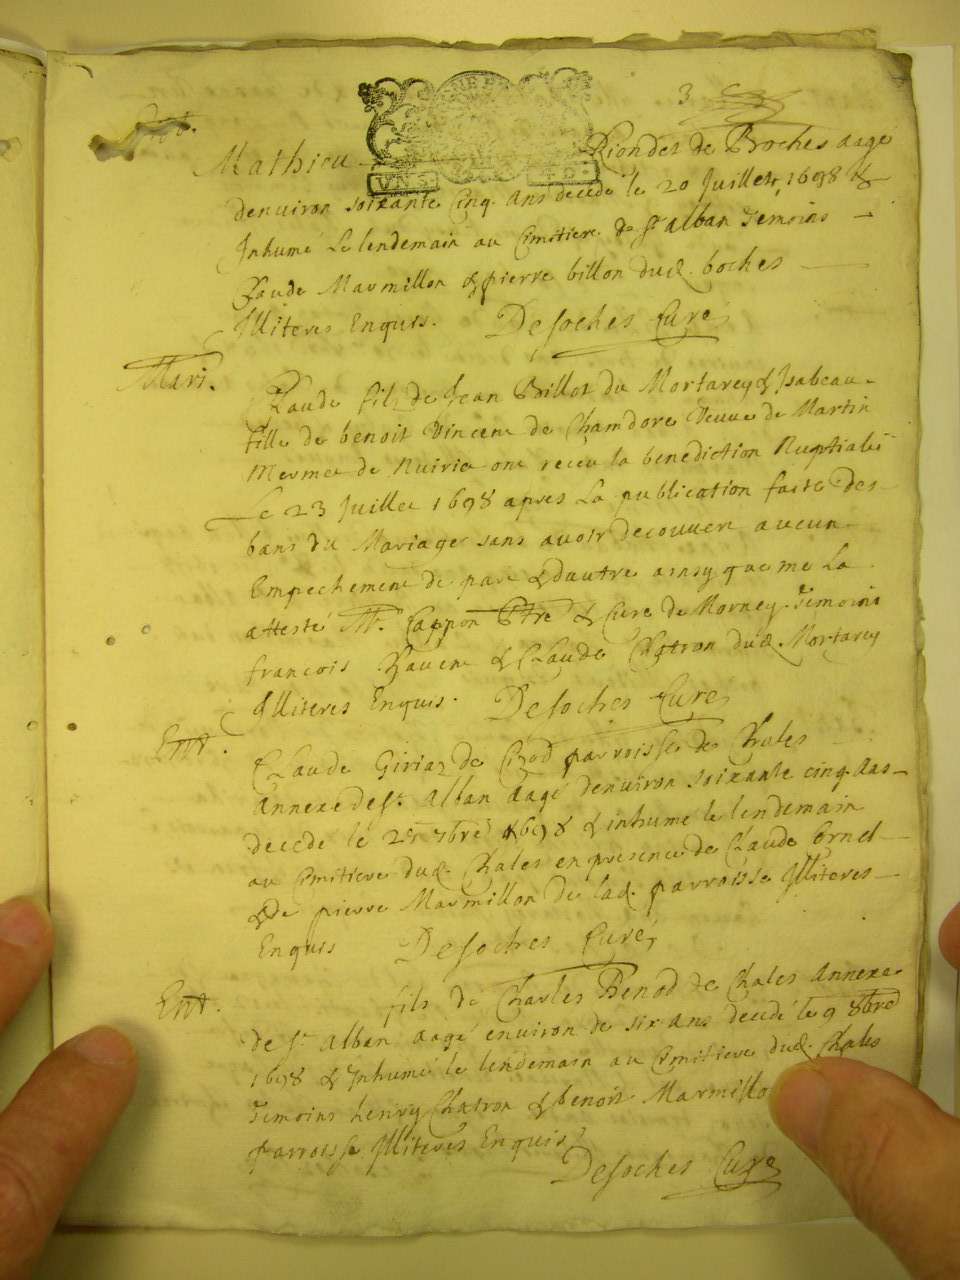 3
Mathieu Riondet de Boches aagé
denuiron soixante cinq ans decedé le 20 Juillet 1698 &
Inhumé le lendemain au Cimitiere de St alban Temoins
Claude Marmillon & pierre billon dud. boches
Illiteres Enquis. Desoches Curé
Mari.
Claude fils de Jean Billot du Mortarey & Isabeau
fille de benoit Vincent de Chamdore Veuve de Martin
Mermet de Nuiric ont receu la benediction Nuptiale
Le 23 Juillet 1698 apres La publication faite des
bans du Mariage sans avoir decouvert aucun
Empechement de part & dautre ainsy que me La
attesté Mr. Cappon Ptre & Curé de Mornay. Temoins
francois & Claude Chatron dud. Mortarey
Illiteres Enquis. Desoches Curé
Ent.
Claude Giriaz de Cizod parroisse de Chales
Annexe de St. Alban aagé denuiron soixante cinq ans
decedé le 7bre 1698 & inhumé le lendemain
au Cimitiere dud. Chales en presence de Claude Cornel
& de pierre Marmillon de lad. parroisse Illiteres
Enquis Desoches Curé
Ent.
fils de Charles Benod de Chales Annexe
de St. Alban aagé environ de six ans decedé le 9 8bre
1698 & Inhumé le lendemain au Cimitiere dud. Chales
Temoins henry Chatron & benoit Marmillo
parroisse Illiteres Enquis
Desoches Curé